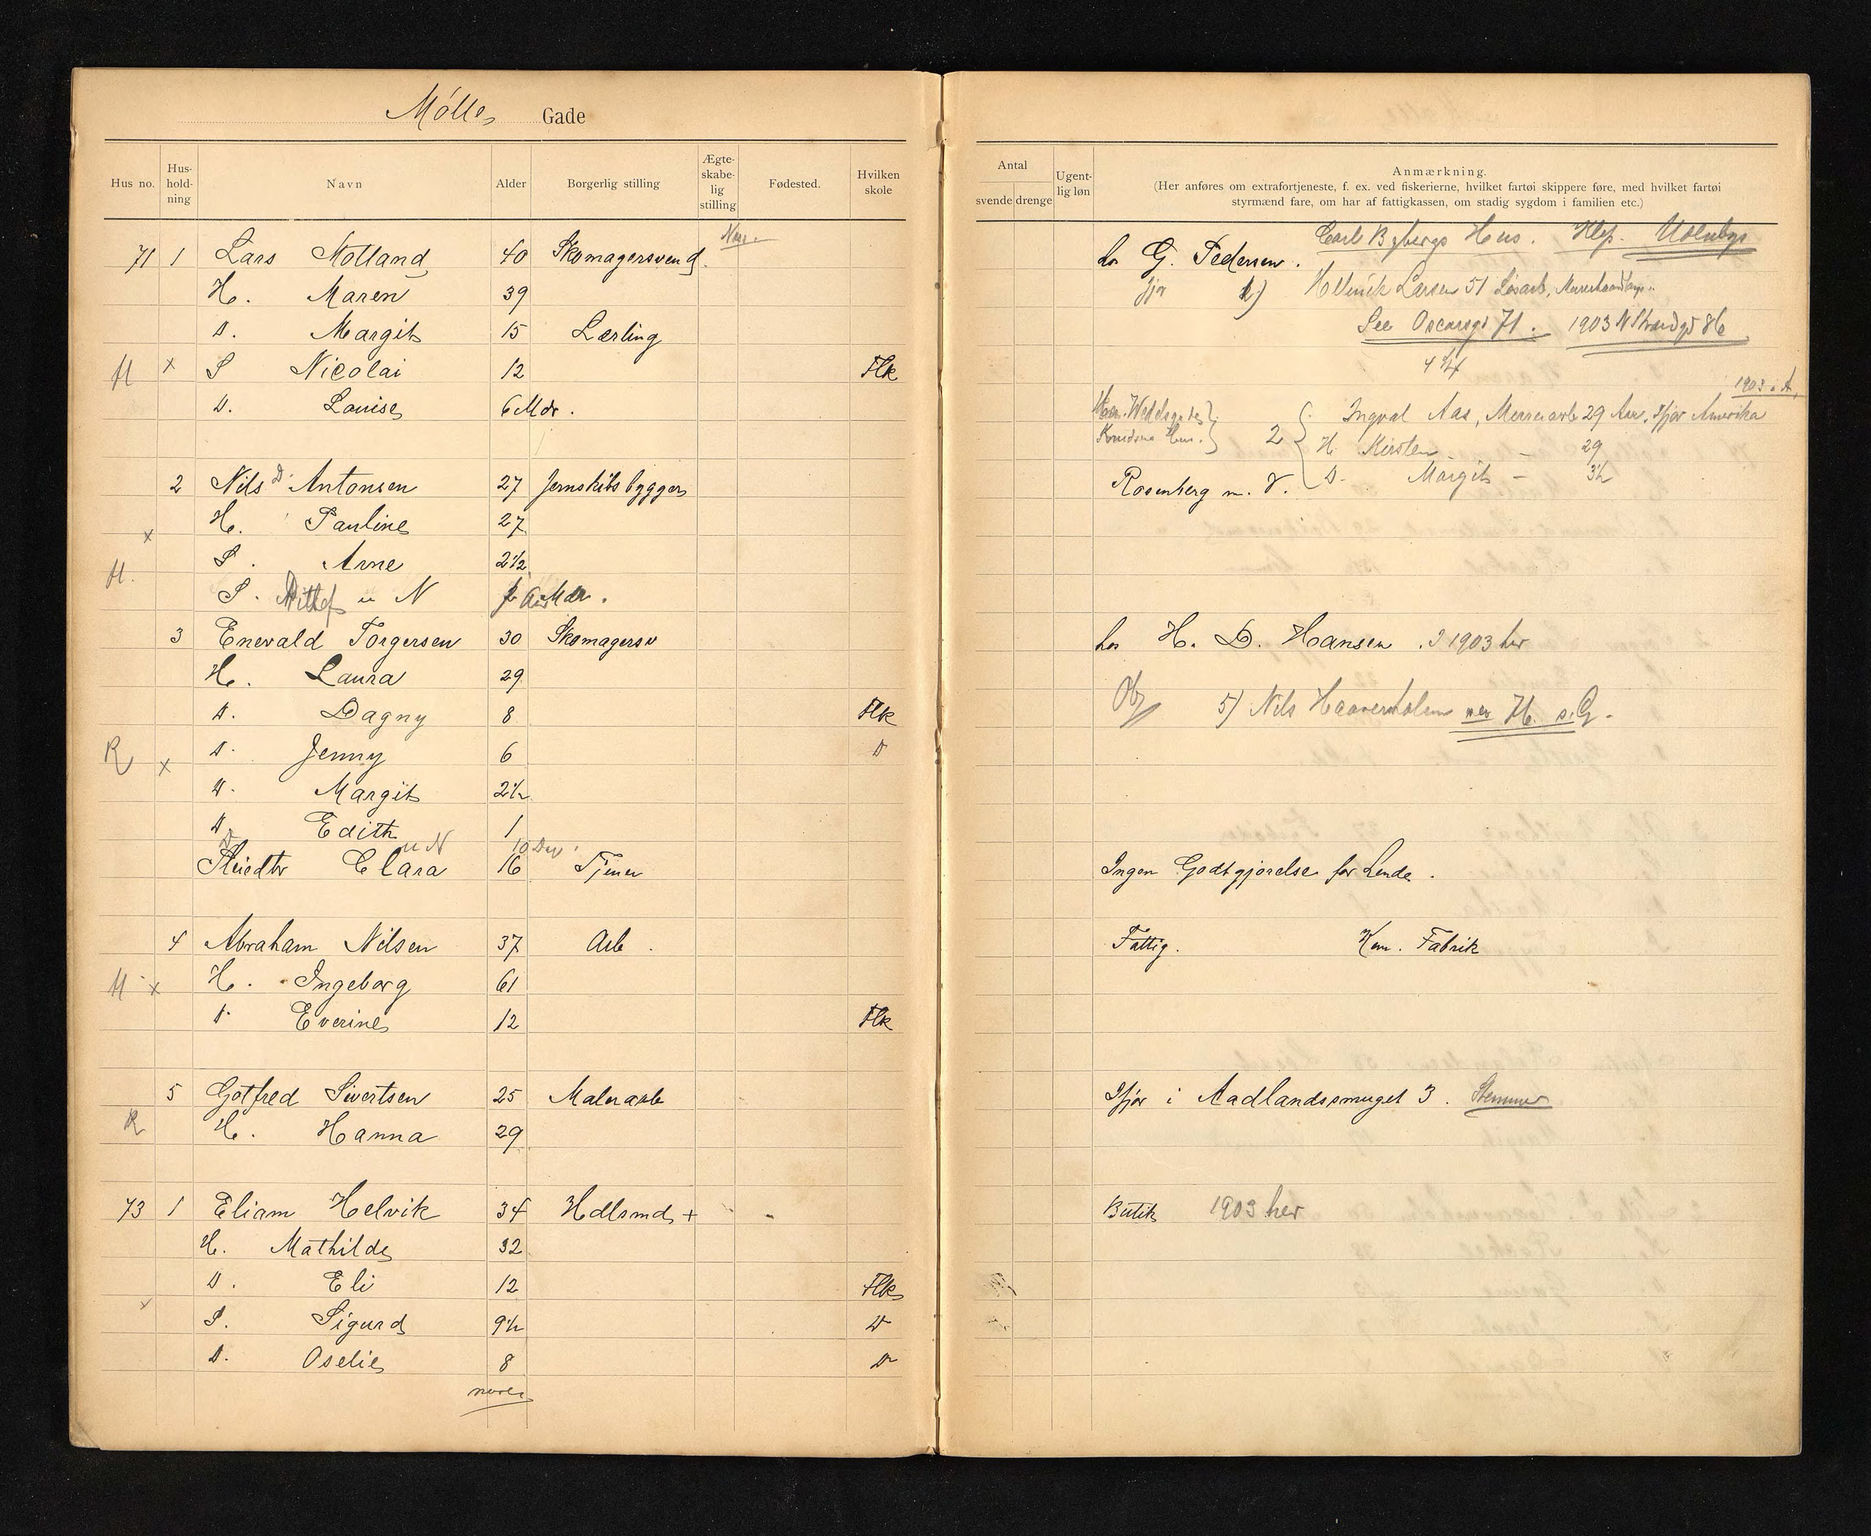 Mølle Gade
Hus no. Hus-hold-ning Navn Alder Borgerlig stilling Ægte-skabe-lig stilling Fødested. Hvilken skole
71 1 Lars Stolland 40 Skomagersvend.
H. Maren 39
D. Margit 15 Lærling
H x S Nicolai 12 Flk
D. Louise 6 Mdr.
2 Nils D. Antonsen 27 Jernskibsbygger
H. Pauline 27
x
H. S. Arne 2½
S. u N Mdr.
3 Enevald Torgersen 30 Skomagersv
H. Laura 29
D. Dagny 8 Flk
R x D. Jenny 6 D
D. Margit 2½
D. Edith 1
D u N 10 Dag.
Pleiedtr Clara 16 Tjener
4 Abraham Nilsen 37 Arb.
H x H. Ingeborg 61
D. Everine 12 Flk
5 Gotfred Sivertsen 25 Malerarb
R H. Hanna 29
73 1 Eliam Helvik 34 Hdlsmd +
H. Mathilde 32
D. Eli 12 Flk
S. Sigurd 9½ D
D. Oselie 8 D
Antal
svende drenge
Ugent-lig løn
Anmærkning.
(Her anføres om extrafortjeneste, f. ex. ved fiskerierne, hvilket fartøi skippere føre, med hvilket fartøi
styrmænd fare, om har af fattigkassen, om stadig sygdom i familien etc.)
Carl Bybergs Hus.
hos G. Pedersen.
Larsen 51
See Oscarsgd 71. 1903 N Strandgd 86
1903 i A.
2 Ingval Aas, 29 Aar, Ifjor Amerika
H. Kirsten 29
D. Margit 3½
Rosenberg m. V.
hos H. D. Hansen. I 1903 her
5) Nils H. s. G.
Ingen Godtgjørelse for Lende.
Fattig. Kem. Fabrik
Ifjor i Aadlandssmuget 3. Stemmer
Butik 1903 her